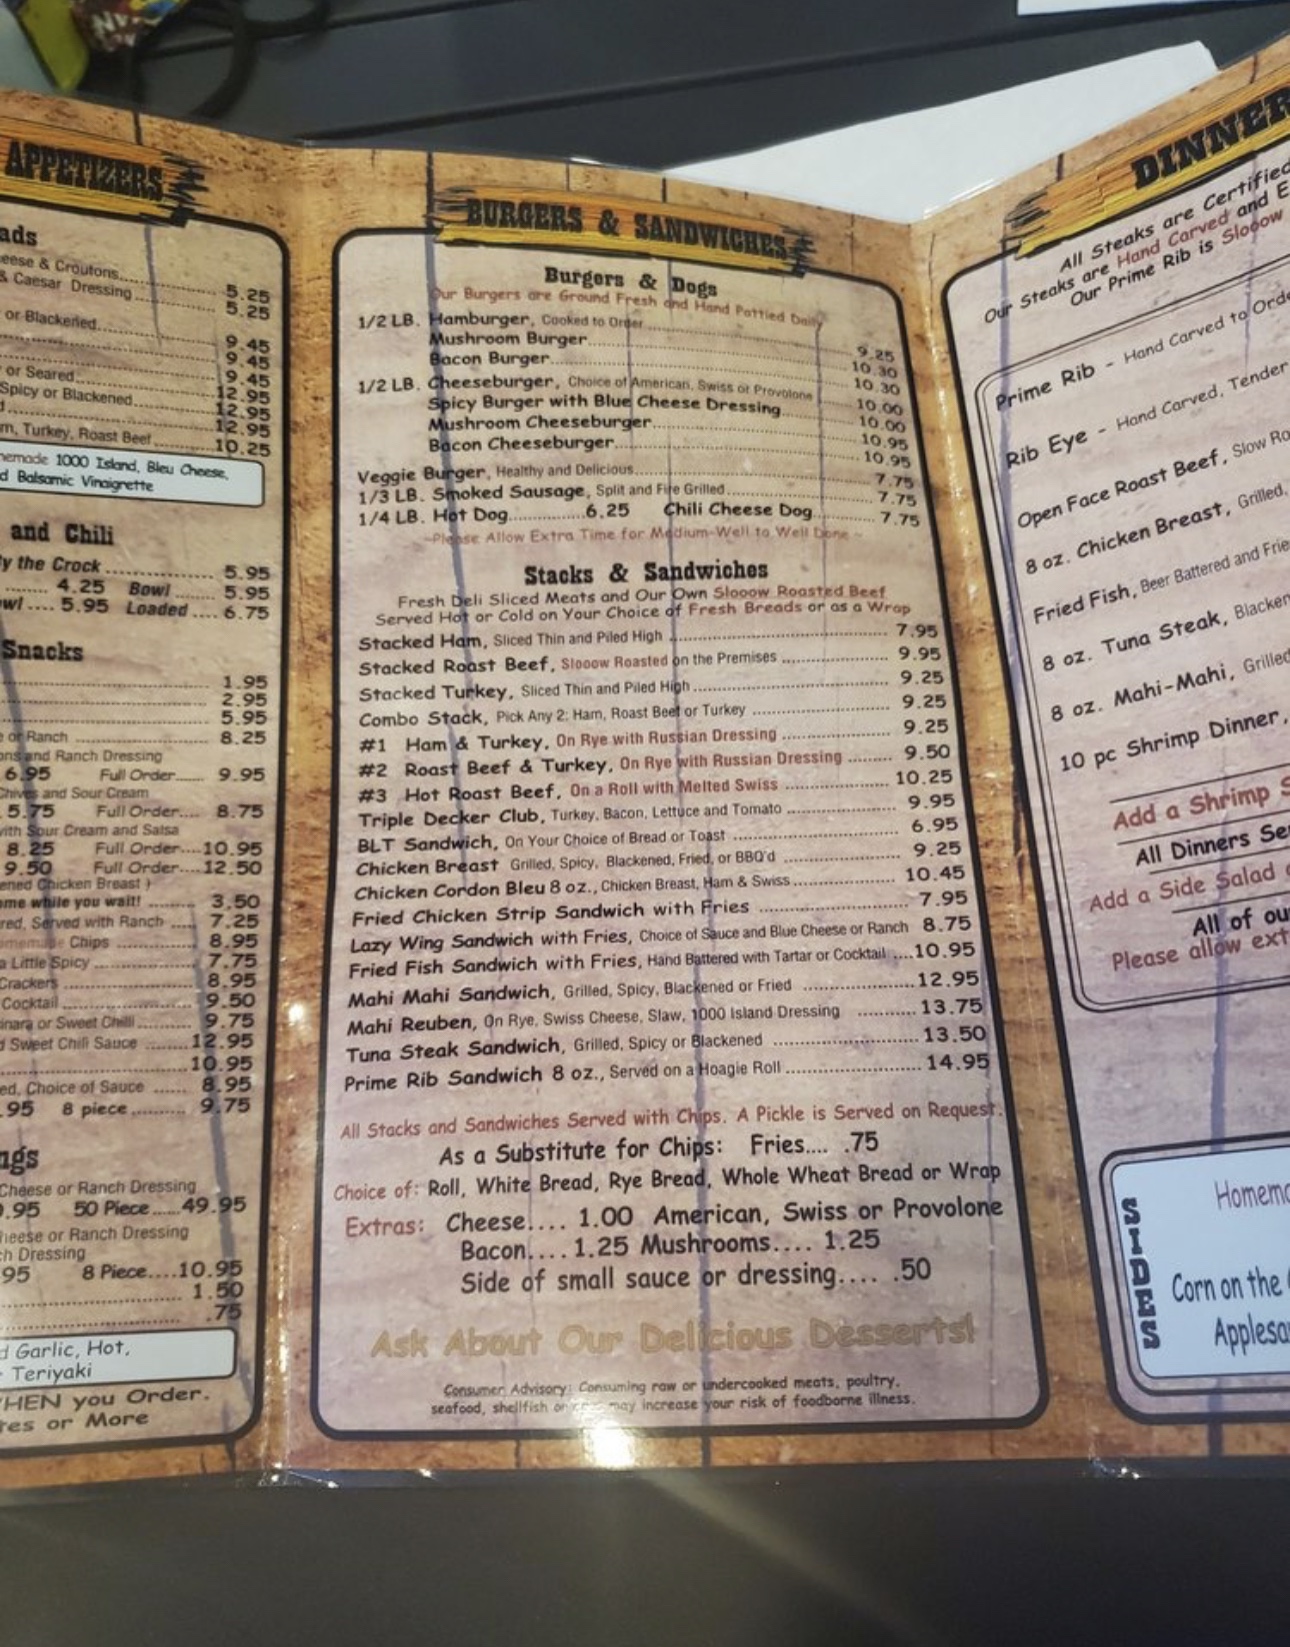 APPETIZERS
ads
eese & Croutons 5.25
& Caesar Dressing 5.25
or Blackened 9.45
9.45
or Seared 9.45
Spicy or Blackened 12.95
12.95
12.95
m, Turkey, Roast Beef 10.25
nemade 1000 Island, Bleu Cheese,
d Balsamic Vinaigrette
and Chili
y the Crock 5.95
4.25 Bowl 5.95
wl .... 5.95 Loaded .... 6.75
Snacks
1.95
2.95
5.95
e or Ranch 8.25
ons and Ranch Dressing
6.95 Full Order...... 9.95
Chives and Sour Cream
5.75 Full Order.... 8.75
with Sour Cream and Salsa
8.25 Full Order....10.95
9.50 Full Order....12.50
ened Chicken Breast )
ome while you wait! 3.50
red, Served with Ranch 7.25
omemade Chips 8.95
a Little Spicy 7.75
Crackers 8.95
Cocktail 9.50
inara or Sweet Chili 9.75
d Sweet Chili Sauce 12.95
10.95
ed, Choice of Sauce 8.95
.95 8 piece 9.75
ngs
Cheese or Ranch Dressing
.95 50 Piece.....49.95
heese or Ranch Dressing
ch Dressing
95 8 Piece....10.95
1.50
.75
d Garlic, Hot,
Teriyaki
HEN you Order.
tes or More
BURGERS & SANDWICHES
Burgers & Dogs
Our Burgers are Ground Fresh and Hand Pattied Daily
1/2 LB. Hamburger, Cooked to Order 9.25
Mushroom Burger 10.30
Bacon Burger 10.30
1/2 LB. Cheeseburger, Choice of American, Swiss or Provolone 10.00
Spicy Burger with Blue Cheese Dressing 10.00
Mushroom Cheeseburger 10.95
Bacon Cheeseburger 10.95
Veggie Burger, Healthy and Delicious 7.75
1/3 LB. Smoked Sausage, Split and Fire Grilled 7.75
1/4 LB. Hot Dog 6.25 Chili Cheese Dog 7.75
~Please Allow Extra Time for Medium-Well to Well Done ~
Stacks & Sandwiches
Fresh Deli Sliced Meats and Our Own Slooow Roasted Beef
Served Hot or Cold on Your Choice of Fresh Breads or as a Wrap
Stacked Ham, Sliced Thin and Piled High 7.95
Stacked Roast Beef, Slooow Roasted on the Premises 9.95
Stacked Turkey, Sliced Thin and Piled High 9.25
Combo Stack, Pick Any 2: Ham, Roast Beef or Turkey 9.25
#1 Ham & Turkey, On Rye with Russian Dressing 9.25
#2 Roast Beef & Turkey, On Rye with Russian Dressing 9.50
#3 Hot Roast Beef, On a Roll with Melted Swiss 10.25
Triple Decker Club, Turkey, Bacon, Lettuce and Tomato 9.95
BLT Sandwich, On Your Choice of Bread or Toast 6.95
Chicken Breast Grilled, Spicy, Blackened, Fried, or BBQ'd 9.25
Chicken Cordon Bleu 8 oz., Chicken Breast, Ham & Swiss 10.45
Fried Chicken Strip Sandwich with Fries 7.95
Lazy Wing Sandwich with Fries, Choice of Sauce and Blue Cheese or Ranch 8.75
Fried Fish Sandwich with Fries, Hand Battered with Tartar or Cocktail ....10.95
Mahi Mahi Sandwich, Grilled, Spicy, Blackened or Fried 12.95
Mahi Reuben, On Rye, Swiss Cheese, Slaw, 1000 Island Dressing 13.75
Tuna Steak Sandwich, Grilled, Spicy or Blackened 13.50
Prime Rib Sandwich 8 oz., Served on a Hoagie Roll 14.95
All Stacks and Sandwiches Served with Chips. A Pickle is Served on Request.
As a Substitute for Chips: Fries.... .75
Choice of: Roll, White Bread, Rye Bread, Whole Wheat Bread or Wrap
Extras: Cheese.... 1.00 American, Swiss or Provolone
Bacon.... 1.25 Mushrooms.... 1.25
Side of small sauce or dressing.... .50
Ask About Our Delicious Desserts!
Consumer Advisory: Consuming raw or undercooked meats, poultry,
seafood, shellfish or may increase your risk of foodborne illness.
DINNER
All Steaks are Certified
Our Steaks are Hand Carved and E
Our Prime Rib is Slooow
Prime Rib - Hand Carved to Orde
Rib Eye - Hand Carved, Tender
Open Face Roast Beef, Slow Ro
8 oz. Chicken Breast, Grilled,
Fried Fish, Beer Battered and Frie
8 oz. Tuna Steak, Blacken
8 oz. Mahi-Mahi, Grilled
10 pc Shrimp Dinner,
Add a Shrimp S
All Dinners Se
Add a Side Salad
All of ou
Please allow ext
SIDES
Homema
Corn on the
Applesa